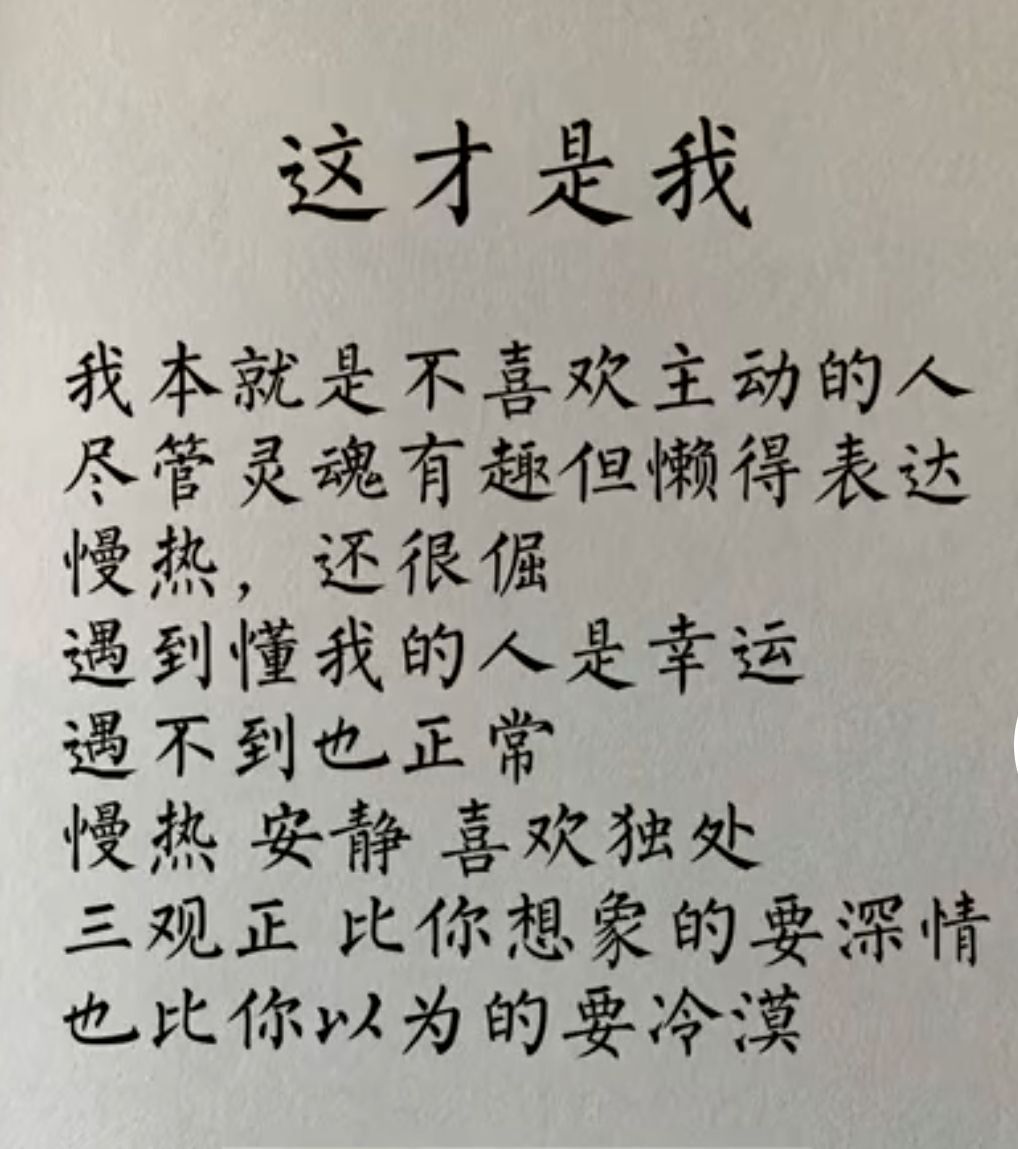 这才是我
我本就是不喜欢主动的人
尽管灵魂有趣但懒得表达
慢热，还很倔
遇到懂我的人是幸运
遇不到也正常
慢热 安静 喜欢独处
三观正 比你想象的要深情
也比你以为的要冷漠